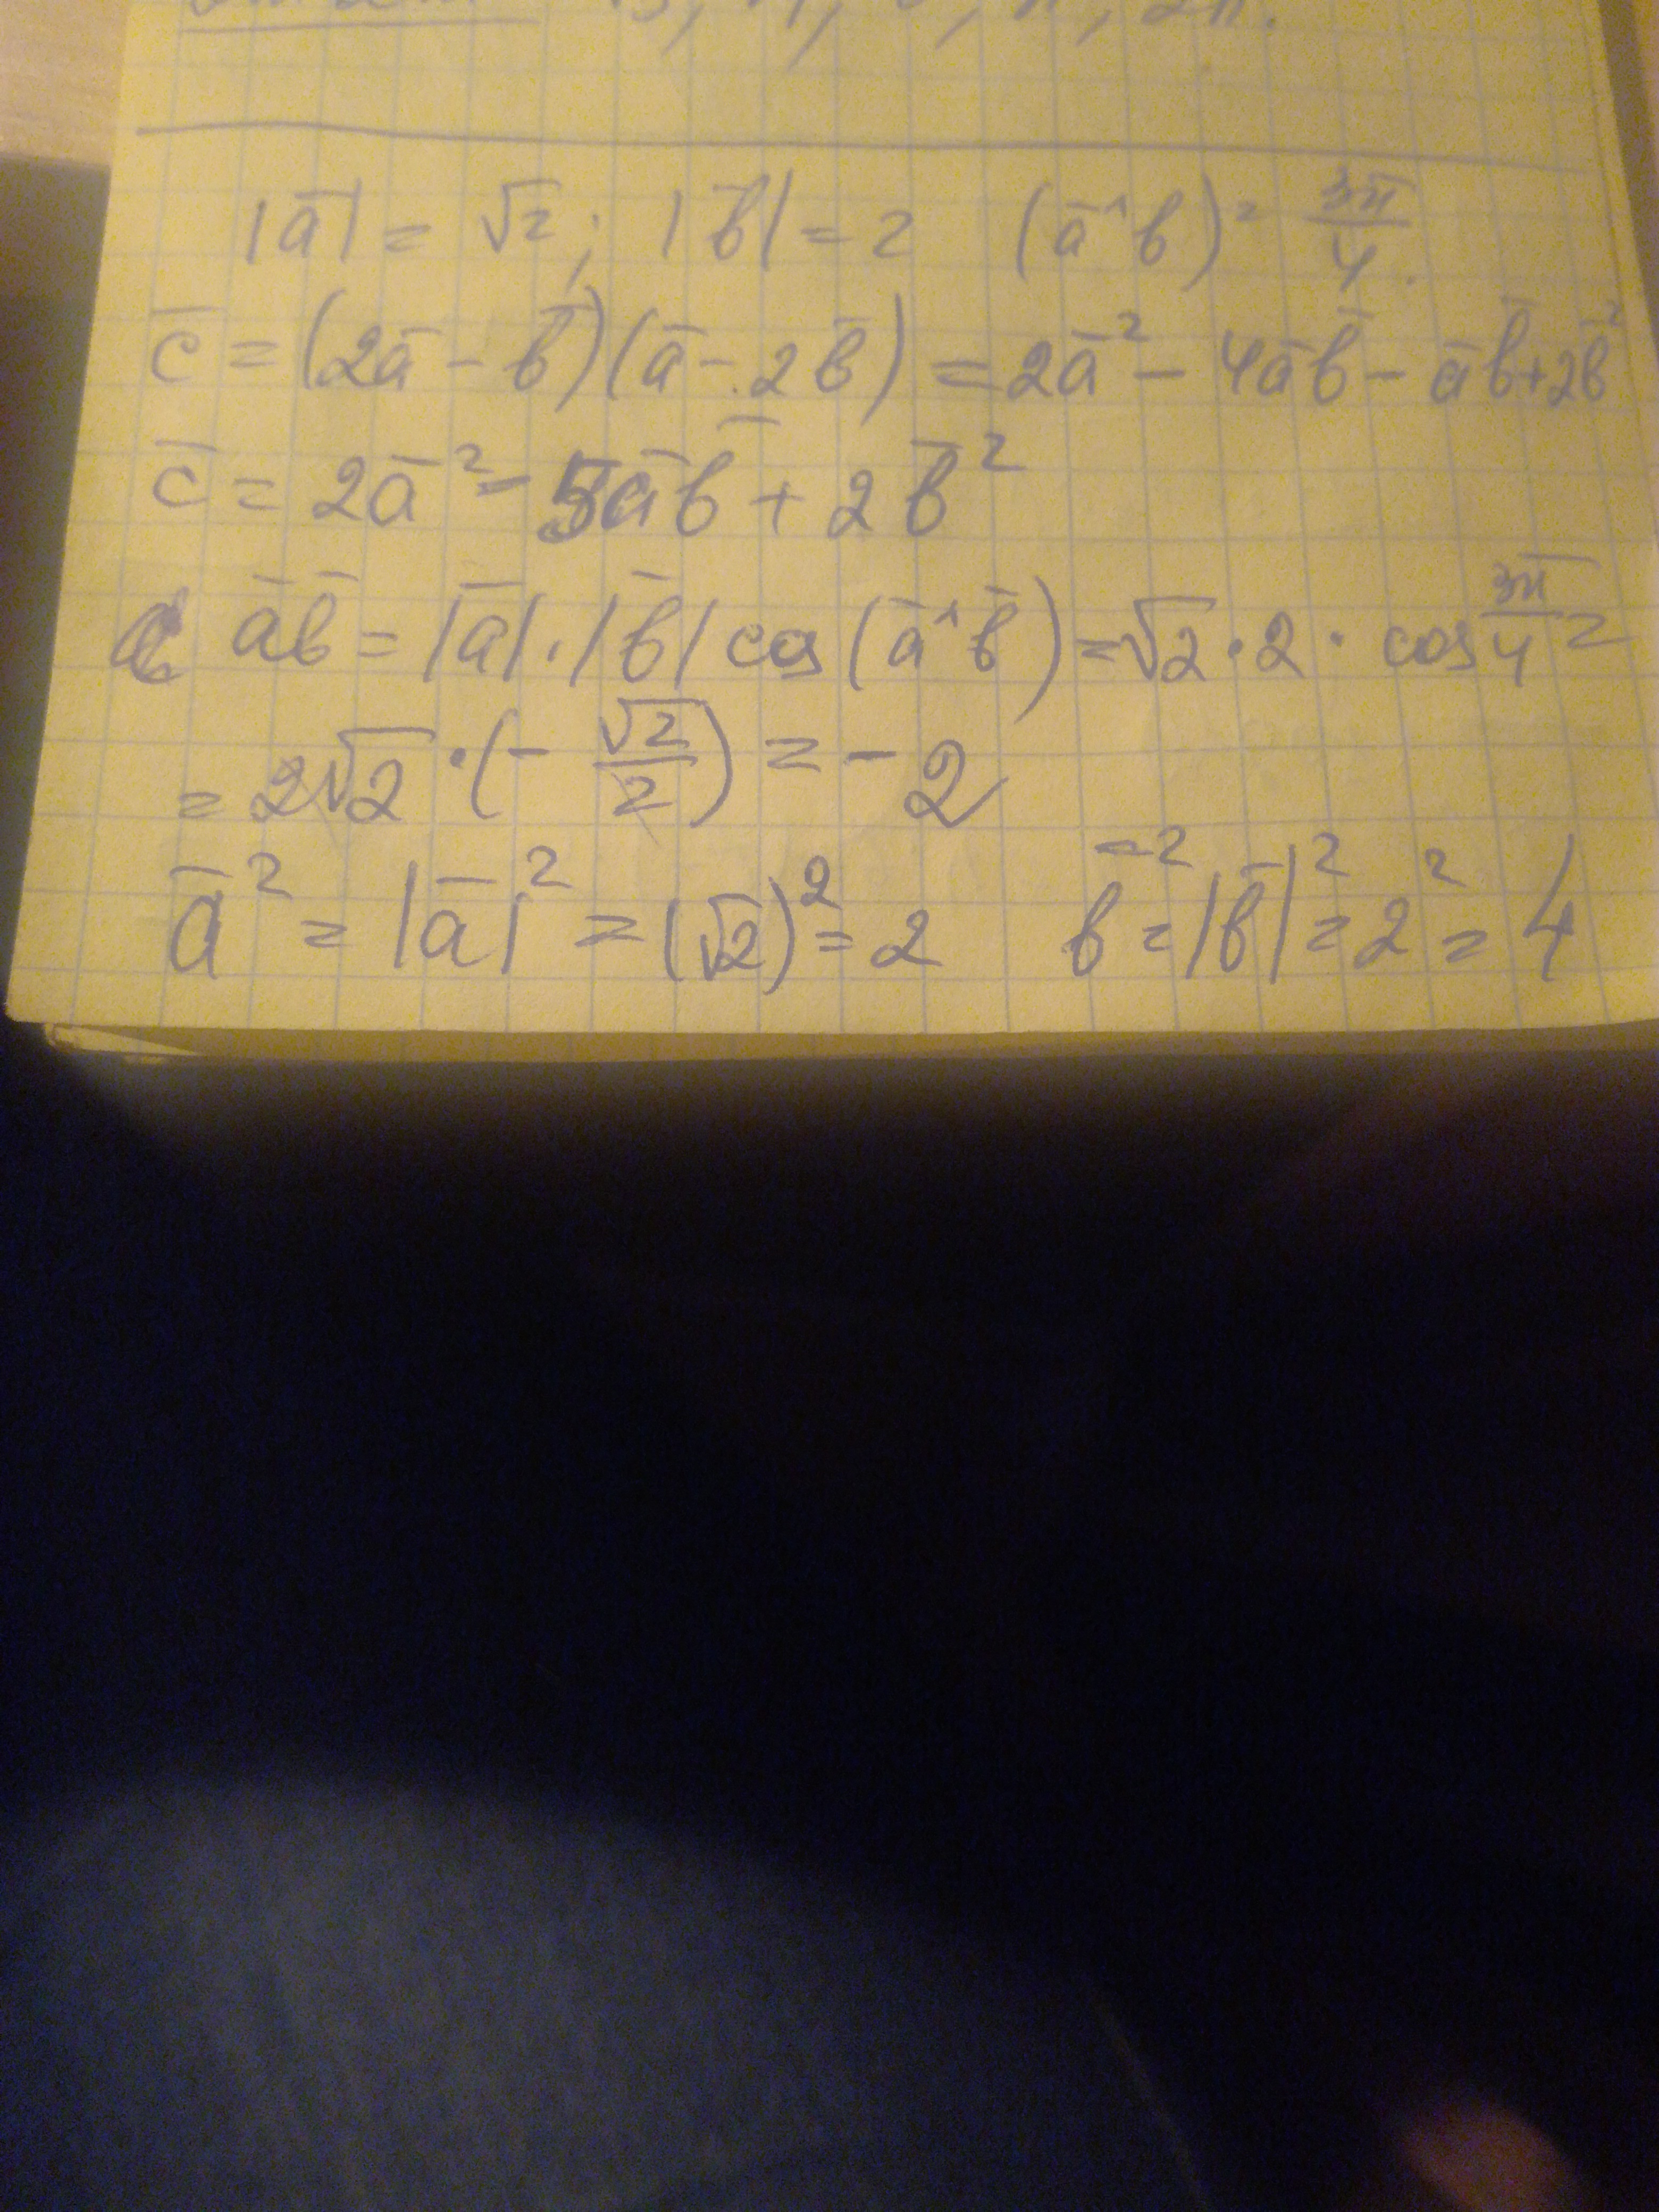 |a̅| = √2; |b̅| = 2 (a̅^b) = 3π/4.
c̅ = (2a̅ - b̅)(a̅ - 2b̅) = 2a̅² - 4a̅b̅ - a̅b̅ + 2b̅²
c̅ = 2a̅² - 5a̅b̅ + 2b̅²
a̅b̅ = |a̅|·|b̅| cos(a̅^b̅) = √2·2·cos 3π/4 =
= 2√2·(-√2/2) = -2
a̅² = |a̅|² = (√2)² = 2 b̅² = |b̅|² = 2² = 4